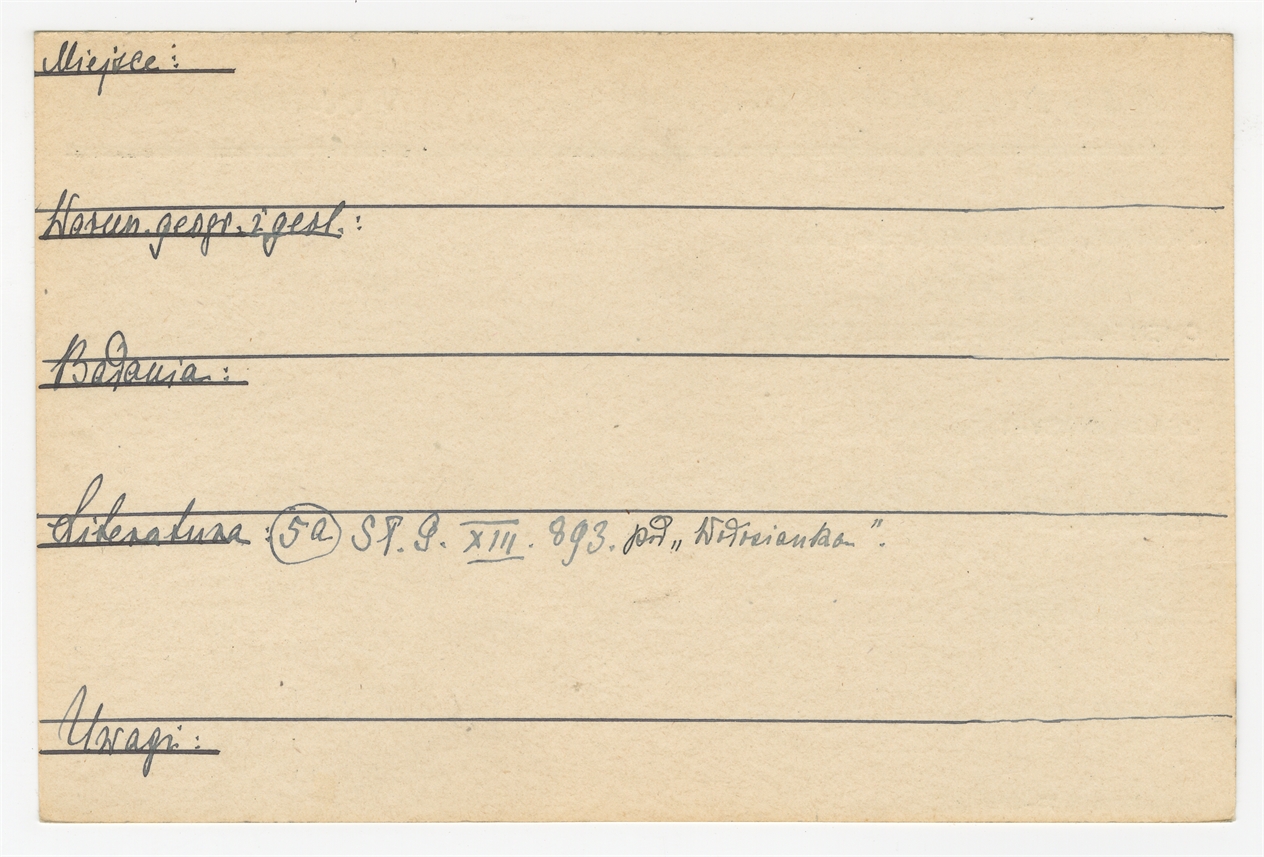 Miejsce:
Warun. geogr. i geol.:
Badania:
Literatura: 5a Sł. G. XIII. 893. pod „Wołosianka".
Uwagi: